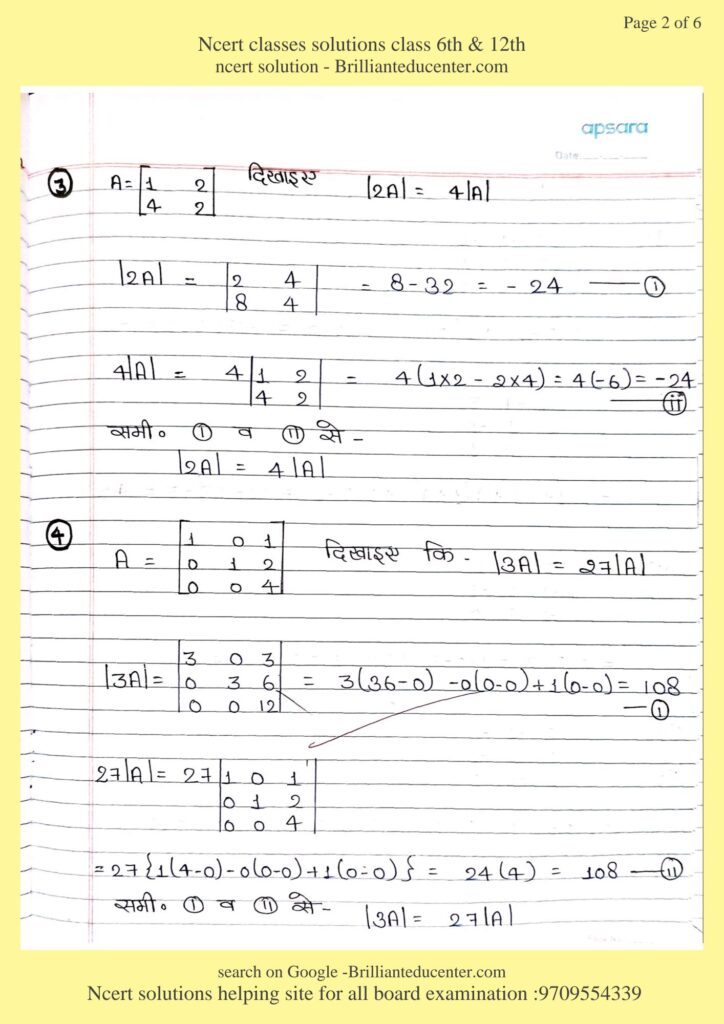 Page 2 of 6
Ncert classes solutions class 6th & 12th
ncert solution - Brillianteducenter.com
apsara
Date
③ A = [1 2 दिखाइए |2A| = 4|A|
4 2]
|2A| = |2 4 = 8 - 32 = - 24 —— ①
8 4|
4|A| = 4 |1 2 = 4(1×2 - 2×4) = 4(-6) = -24
4 2| —— ⑪
समी० ① व ⑪ से -
|2A| = 4|A|
④ [1 0 1
A = 0 1 2 दिखाइए कि - |3A| = 27|A|
0 0 4]
|3 0 3
|3A| = 0 3 6 = 3(36-0) -0(0-0)+1(0-0) = 108
0 0 12| — ①
27|A| = 27 |1 0 1
0 1 2
0 0 4|
= 27{1(4-0)-0(0-0)+1(0-0)} = 24(4) = 108 — ⑪
समी० ① व ⑪ से - |3A| = 27|A|
search on Google -Brillianteducenter.com
Ncert solutions helping site for all board examination :9709554339